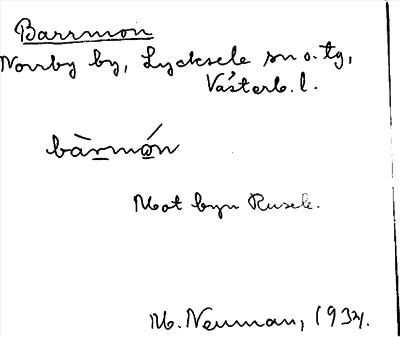 Barrmon
Norrby by, Lycksele sn o. tg,
Västerb. l.
bàrmón
Mot byn Rusele.
M. Neuman, 1934.